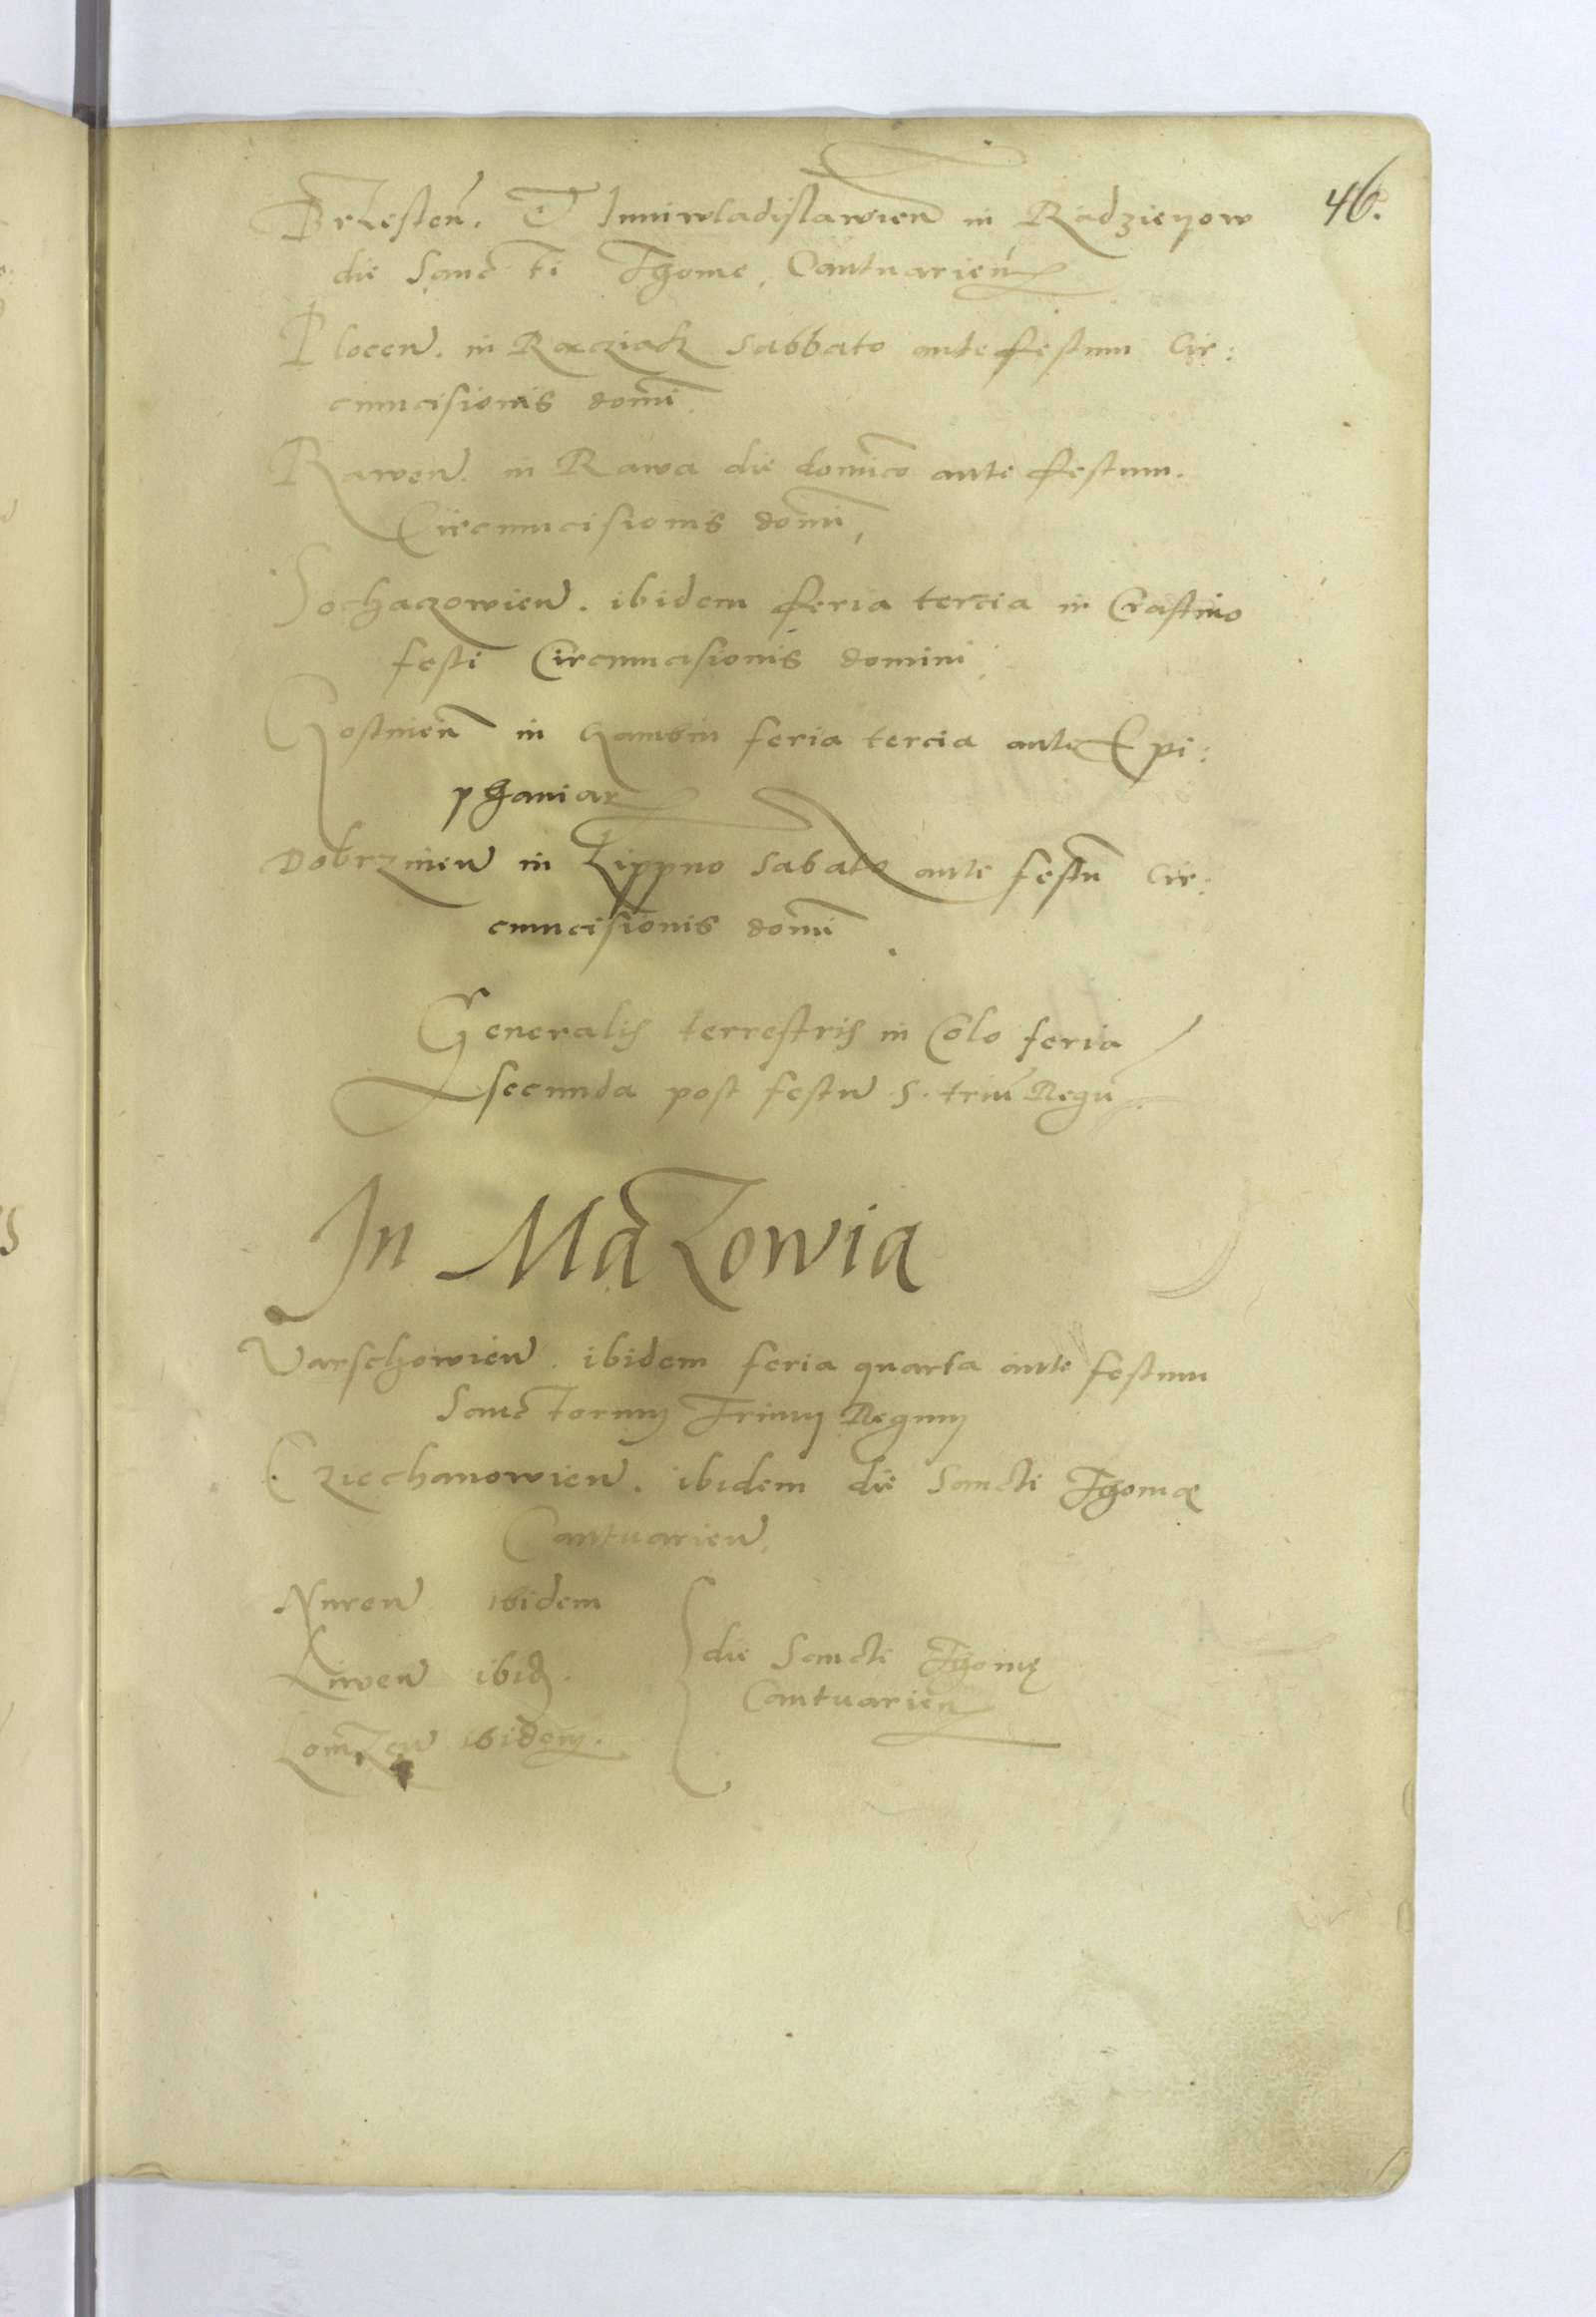 46.
Brzesten̄. Et Inniwladislawien̄ in Radzieyow
die Sancti Thome, Cantuarien̄
Plocen̄. in Racziadz sabbato ante festum Cir:
cumcisionis domi̅
Rawen̄. in Rawa die domi̅co ante festum.
Circumcisionis domi̅,
Sochaczowien̄. ibidem feria tercia in Crastino
festi Circumcisionis domini
Gostinen̄ in Gambin feria tercia ante Epi:
phaniar
Dobrzinen̄ in Lippno Sabato ante festu̅ Cir:
cumcisionis domi̅
Generalis terrestris in Colo feria
secunda post festu̅ S. triu̅ Regu̅
In Mazowia
Varschowien̄. ibidem feria quarta ante festum
Sanctorum Trium Regum
Cziechanowien̄. ibidem die Sancti Thomæ
Cantuarien̄.
Nuren̄ ibidem
Liwen̄ ibid.
Lomzen̄ ibidem.
die Sancti Thomę
Cantuarien̄